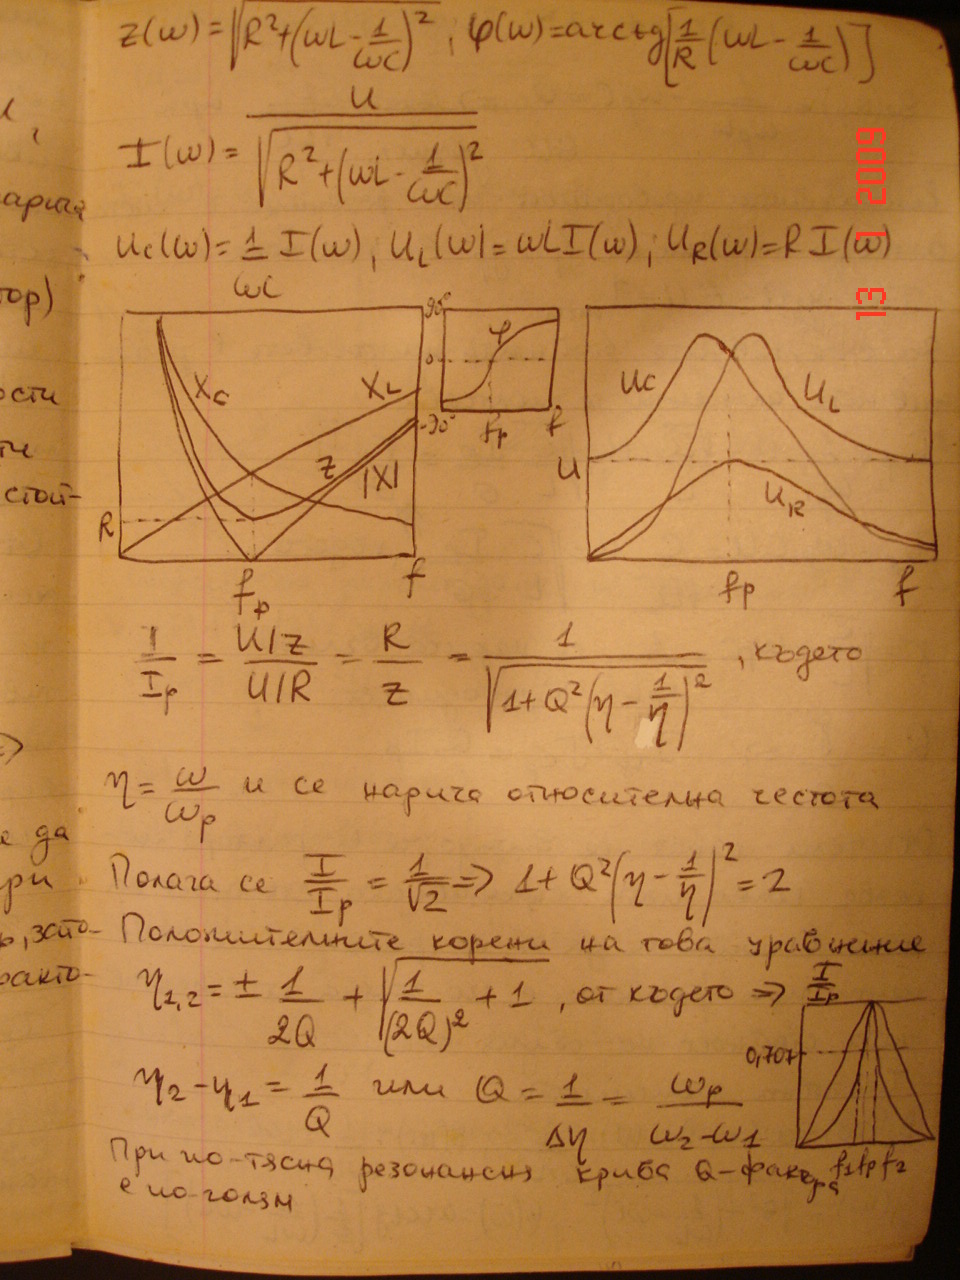 Z(ω)=√(R²+(ωL-1/ωC)²), φ(ω)=arctg[1/R(ωL-1/ωC)]
I(ω)=U/√(R²+(ωL-1/ωC)²)
Uc(ω)=1/ωC I(ω), U_L(ω)=ωL I(ω), U_R(ω)=R I(ω)
13 1 2009
90°
0
-90°
φ
fp
f
Xc
X_L
Z
|X|
R
fp
f
Uc
U_L
U
U_R
fp
f
I/Ip = U/Z / U/R = R/Z = 1/√(1+Q²(η-1/η)²), където
η=ω/ωp и се нарича относителна честота
Полага се I/Ip = 1/√2 => 1+Q²(η-1/η)²=2
Положителните корени на това уравнение
η1,2 = ± 1/2Q + √(1/(2Q)² + 1), от където => I/Ip
0,707
η2-η1 = 1/Q или Q = 1/Δη = ωp/ω2-ω1
f1 fp f2
При по-тясна резонансна крива Q-фактора
е по-голям
тор)
ости
стой-
е да
при